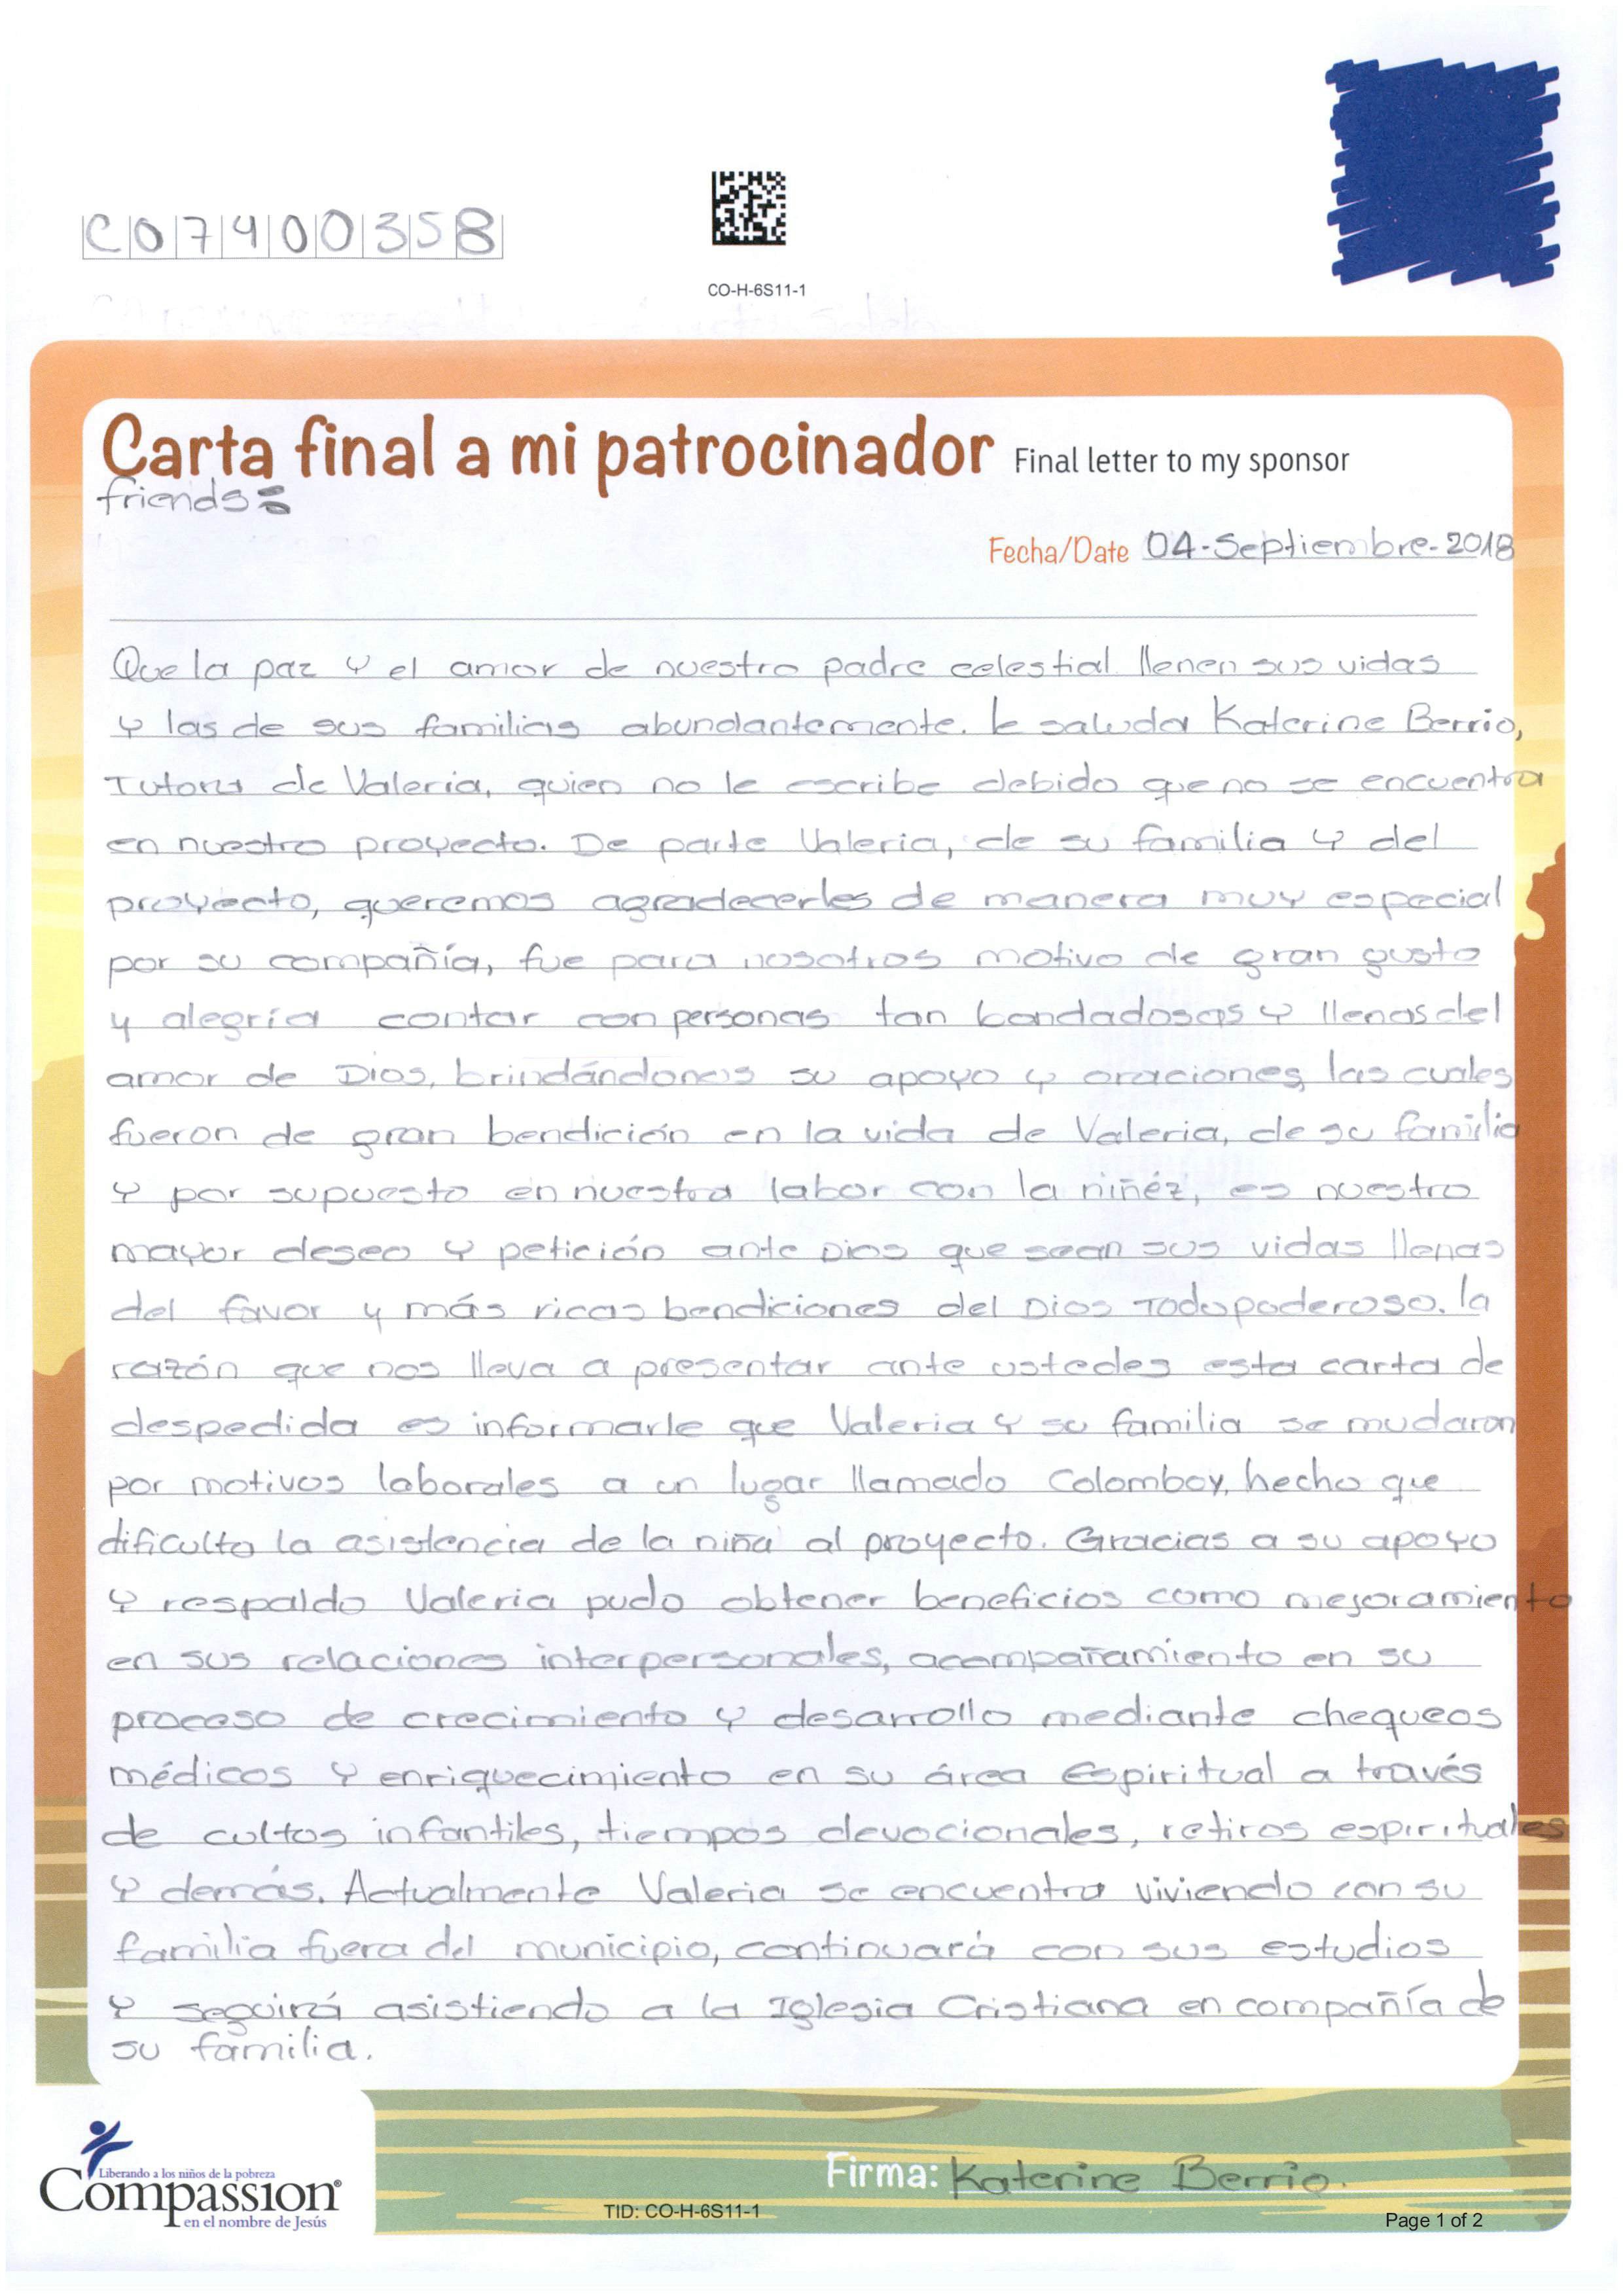 CO7400358
CO-H-6S11-1
Carta final a mi patrocinador Final letter to my sponsor
friends
Fecha/Date 04-Septiembre-2018
Que la paz y el amor de nuestro padre celestial llenen sus vidas
y las de sus familias abundantemente. le saluda Katerine Berrio,
Tutora de Valeria, quien no le escribe debido que no se encuentra
en nuestro proyecto. De parte Valeria, de su familia y del
proyecto, queremos agradecerles de manera muy especial
por su compañía, fue para nosotros motivo de gran gusto
y alegría contar con personas tan bondadosas y llenas del
amor de Dios, brindándonos su apoyo y oraciones, las cuales
fueron de gran bendición en la vida de Valeria, de su familia
y por supuesto en nuestra labor con la niñéz, es nuestro
mayor deseo y petición ante Dios que sean sus vidas llenas
del favor y más ricas bendiciones del Dios Todopoderoso. la
razón que nos lleva a presentar ante ustedes esta carta de
despedida es informarle que Valeria y su familia se mudaron
por motivos laborales a un lugar llamado Colomboy, hecho que
dificulto la asistencia de la niña al proyecto. Gracias a su apoyo
y respaldo Valeria pudo obtener beneficios como mejoramiento
en sus relaciones interpersonales, acompañamiento en su
proceso de crecimiento y desarrollo mediante chequeos
médicos y enriquecimiento en su área Espiritual a través
de cultos infantiles, tiempos devocionales, retiros espirituales
y demás. Actualmente Valeria se encuentra viviendo con su
familia fuera del municipio, continuará con sus estudios
y seguirá asistiendo a la Iglesia Cristiana en compañía de
su familia.
Liberando a los niños de la pobreza
Compassion®
en el nombre de Jesús
Firma: Katerine Berrio.
TID: CO-H-6S11-1
Page 1 of 2